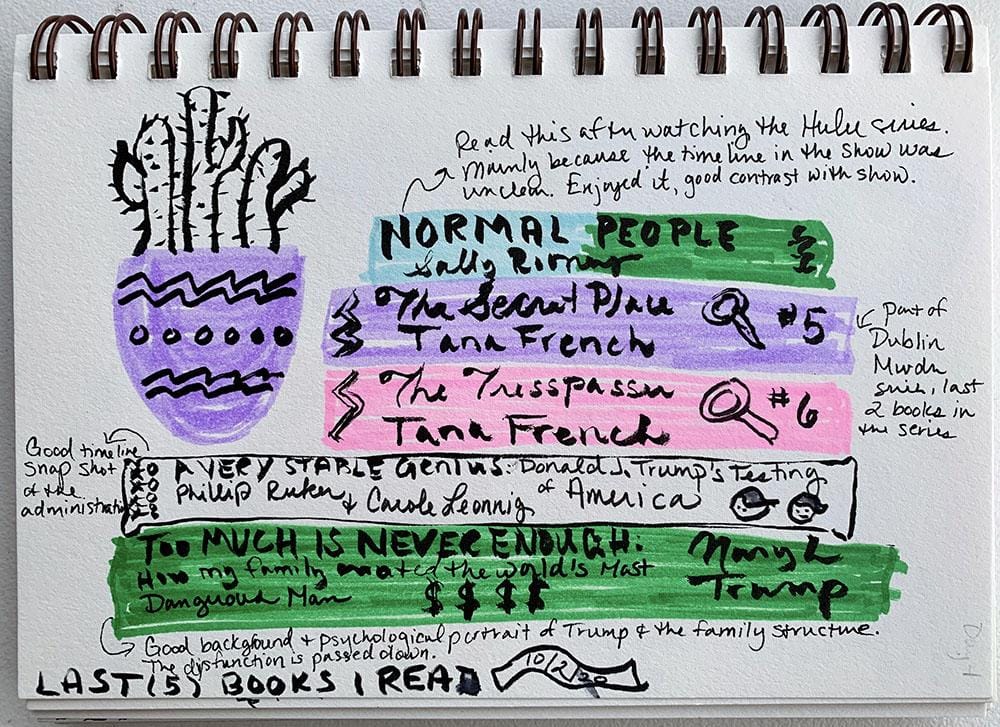 Read this after watching the Hulu series.
Mainly because the timeline in the show was
unclear. Enjoyed it, good contrast with show.
NORMAL PEOPLE
Sally
The Secret Place
Tana French
#5
The Tresspasser
Tana French
#6
part of
Dublin
Murder
series, last
2 books in
the series
Good timeline
snap shot
of the
administration
A VERY STABLE GENIUS: Donald J. Trump's Testing
of America
Phillip Rucker & Carole Leonnig
TOO MUCH IS NEVER ENOUGH:
How my family created the world's Most
Dangerous Man
$ $ $ $
Mary L
Trump
Good background & psychological portrait of Trump & the family structure.
The disfunction is passed down.
LAST (5) BOOKS I READ
10/2/20